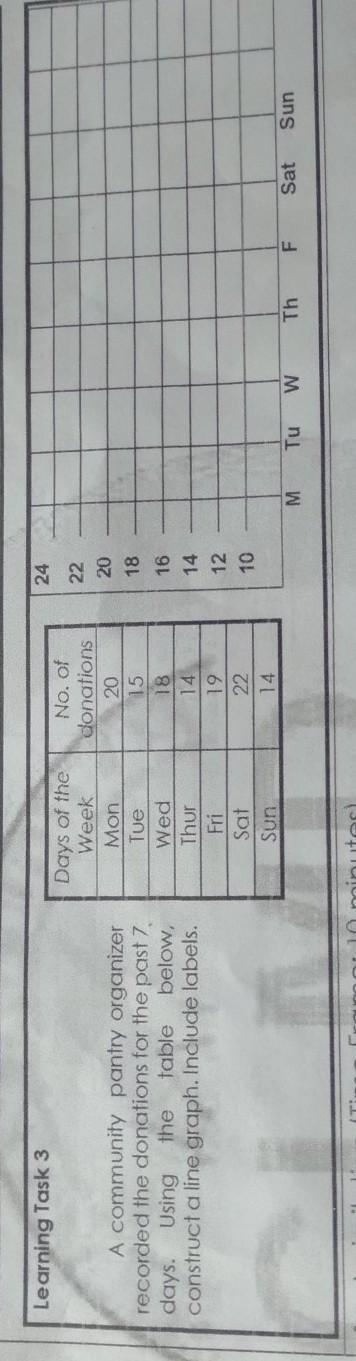 Learning Task 3
A community pantry organizer
recorded the donations for the past 7
days. Using the table below,
construct a line graph. Include labels.
Days of the Week No. of donations
Mon 20
Tue 15
Wed 18
Thur 14
Fri 19
Sat 22
Sun 14
24
22
20
18
16
14
12
10
M Tu W Th F Sat Sun